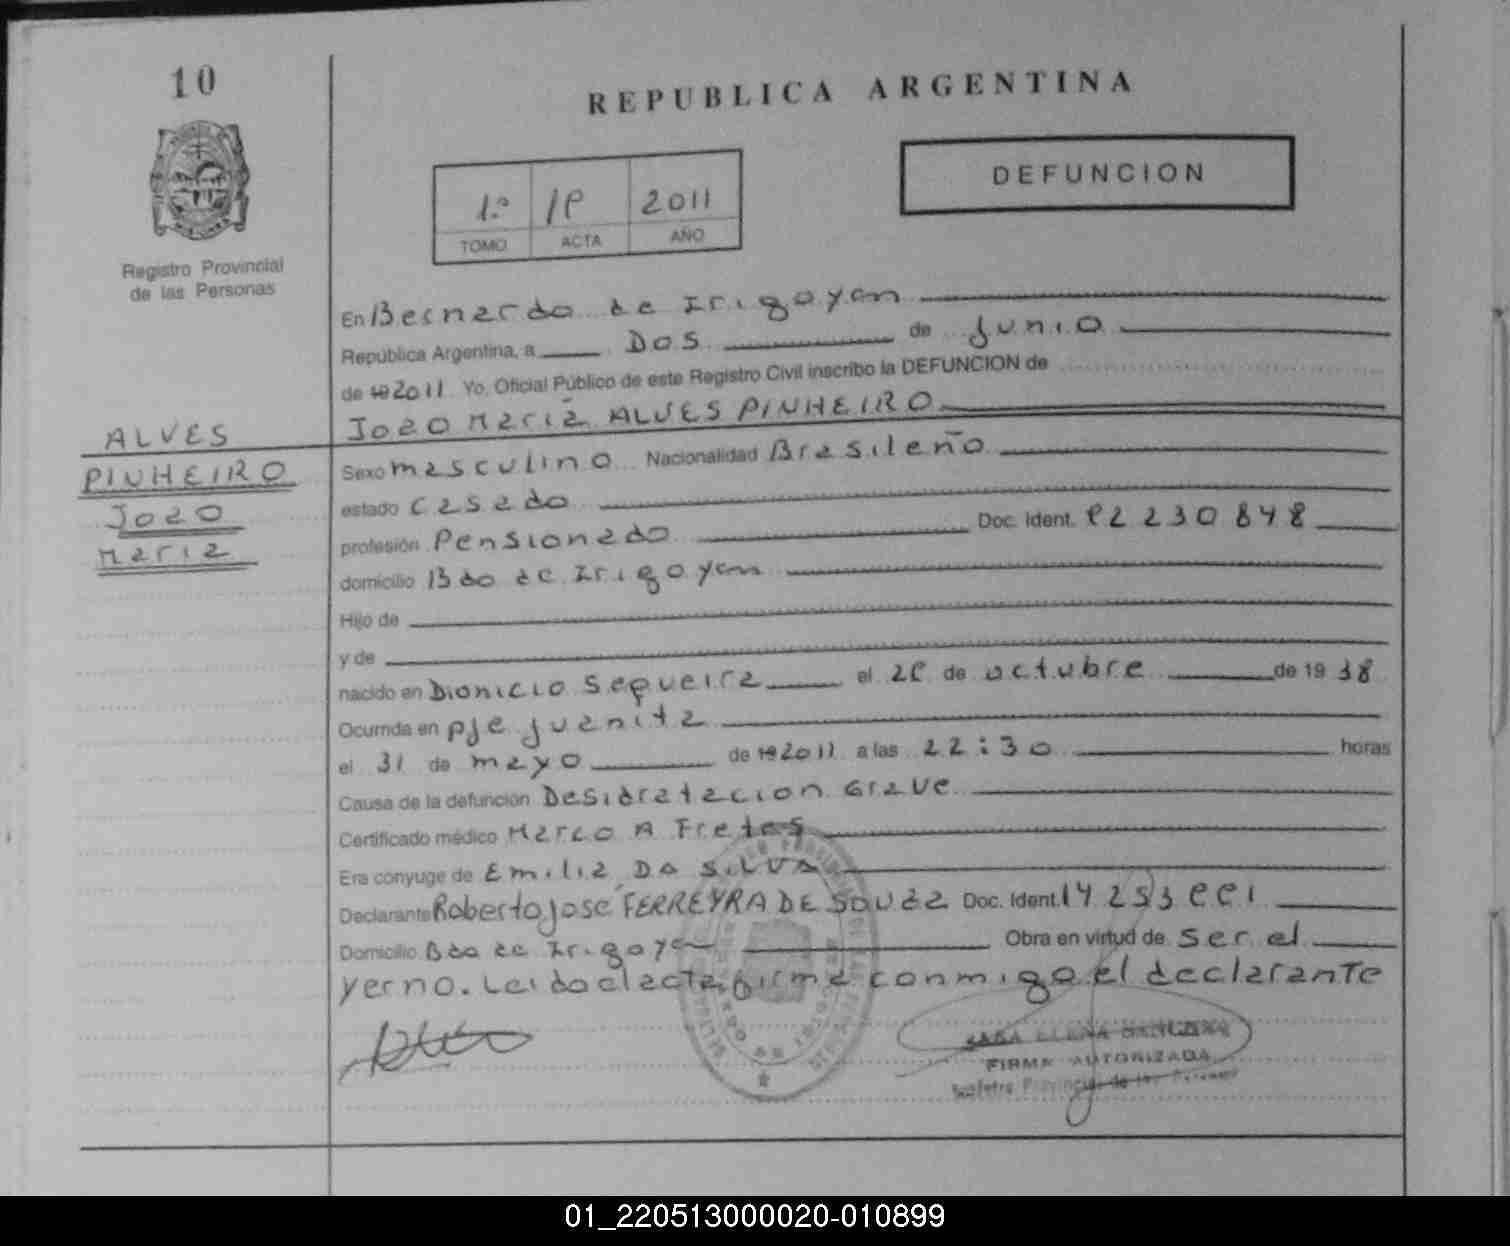 10
REPUBLICA ARGENTINA
DEFUNCION
1.º 19 2011
TOMO ACTA AÑO
Registro Provincial
de las Personas
En Bernardo de Irigoyen
República Argentina, a Dos de junio
de 19 2011 Yo, Oficial Público de este Registro Civil inscribo la DEFUNCION de
Joao Maria ALVES PINHEIRO
ALVES
PINHEIRO
Joao
Maria
Sexo masculino Nacionalidad Brasileño
estado casado
profesión Pensionado Doc. Ident. 92 230 848
domicilio Bdo de Irigoyen
Hijo de
y de
nacido en Dionicio Sequeira el 29 de octubre de 19 38
Ocurrida en pje juanita
el 31 de mayo de 19 2011 a las 22:30 horas
Causa de la defunción Desidratacion Grave
Certificado médico Marco A Fretes
Era conyuge de Emilia Da SiLVA
Declarante Roberto jose FERREYRA DE SOUZA Doc. Ident. 14 253 991
Domicilio Bdo de Irigoyen Obra en virtud de ser el
yerno. Leido el acta firma conmigo el declarante
SARA ELENA
FIRMA AUTORIZADA
Registro Provincial de las Personas
01_220513000020-010899